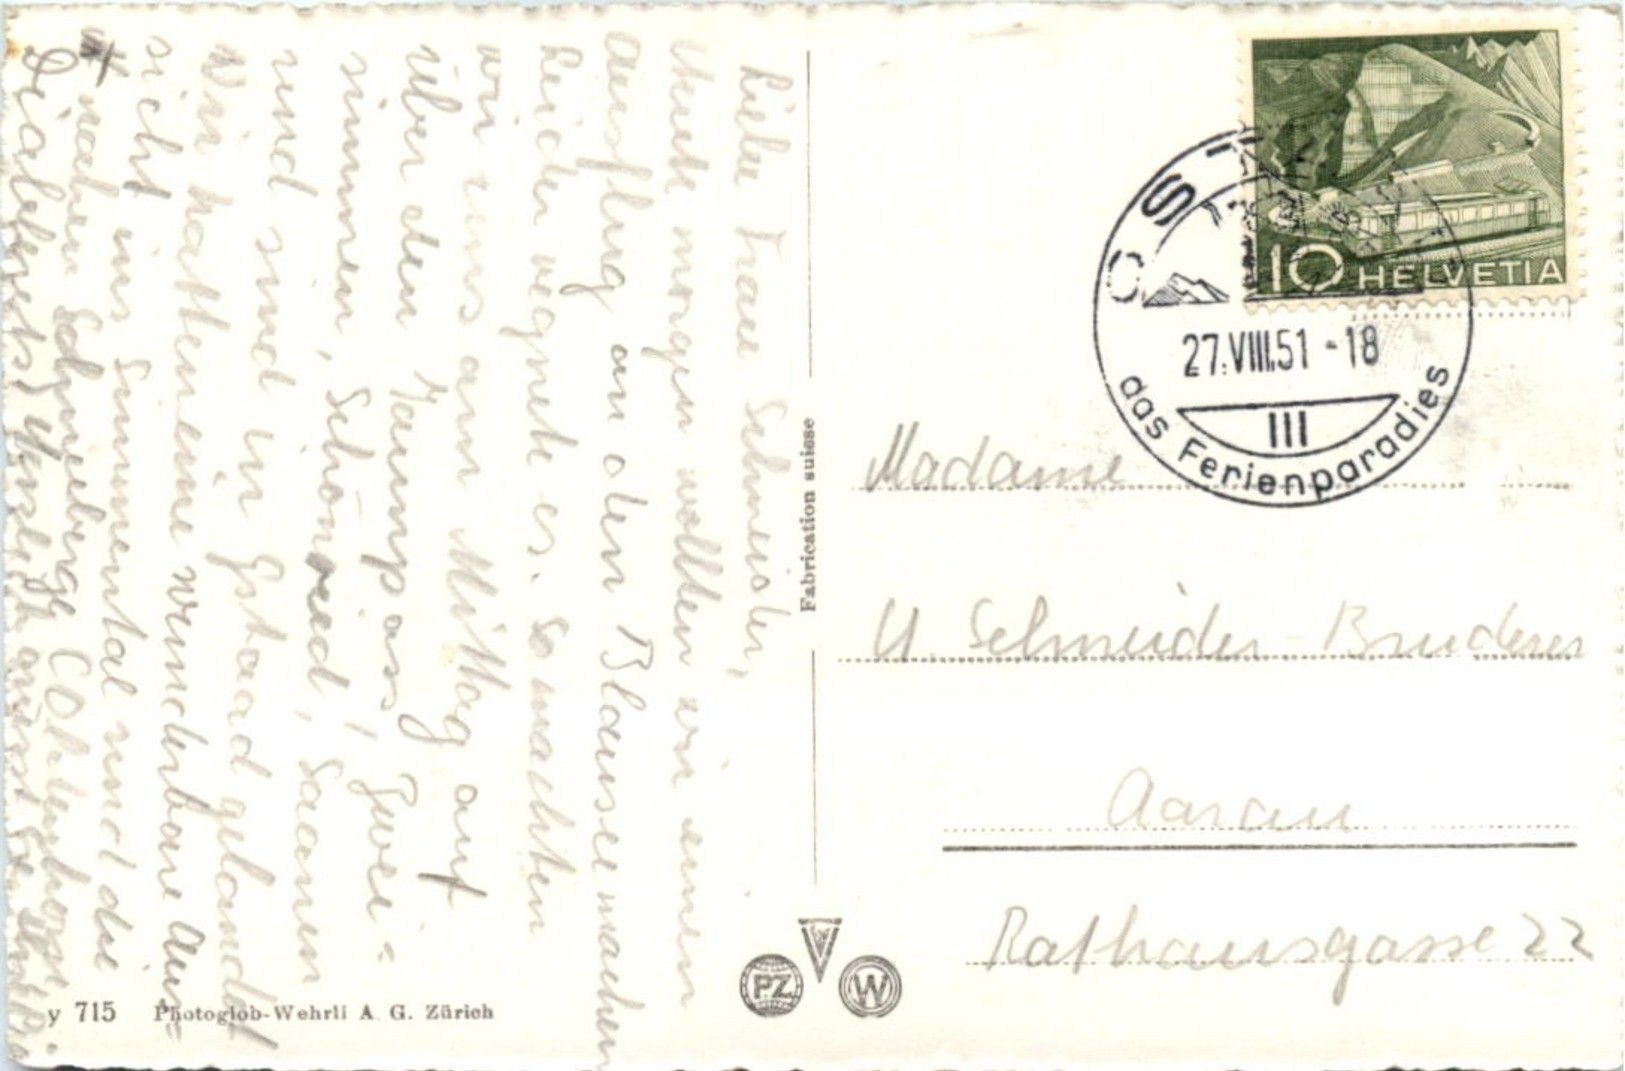 Liebe Frau Schneider,
Heute morgen wollten wir einen
Ausflug an den Blausee machen
Leider regnete es. So machten
wir uns am Mittag auf
über den Jaunpass, Zwei=
simmen, Schönried, Saanen
und sind in Gstaad gelandet
Wir hatten eine wunderbare Aus=
sicht ins Simmental und die
nahen Schneeberge
Diablerets) Herzlich grüsst Sie
Fabrication suisse
GSTAAD
27.VIII.51 - 18
III
das Ferienparadies
10 HELVETIA
Madame
U. Schneider-Bruderer
Aarau
Rathausgasse 22
PZ
W
y 715 Photoglob-Wehrli A. G. Zürich